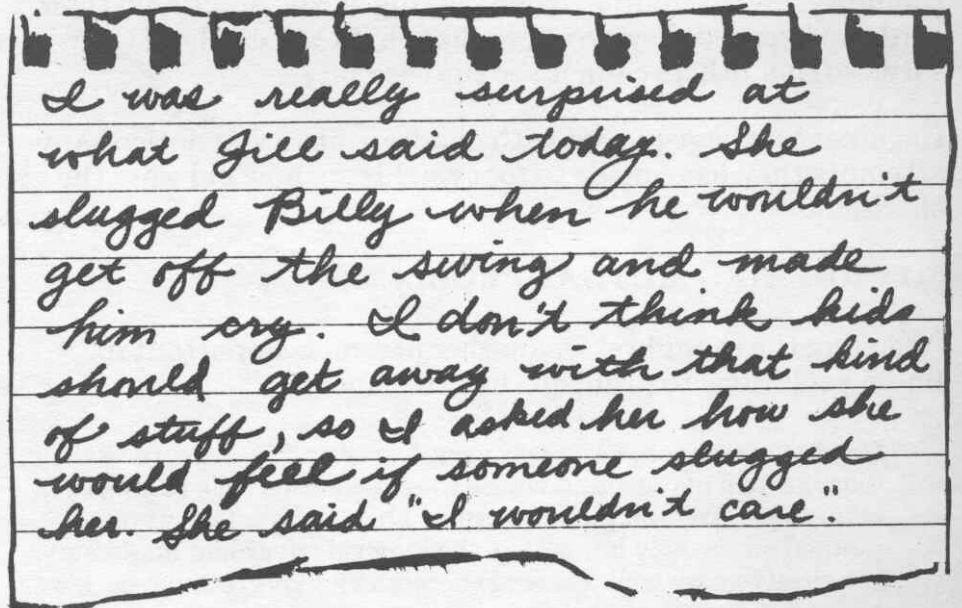 I was really surprised at
what Jill said today. She
slugged Billy when he wouldn't
get off the swing and made
him cry. I don't think kids
should get away with that kind
of stuff, so I asked her how she
would feel if someone slugged
her. She said "I wouldn't care".